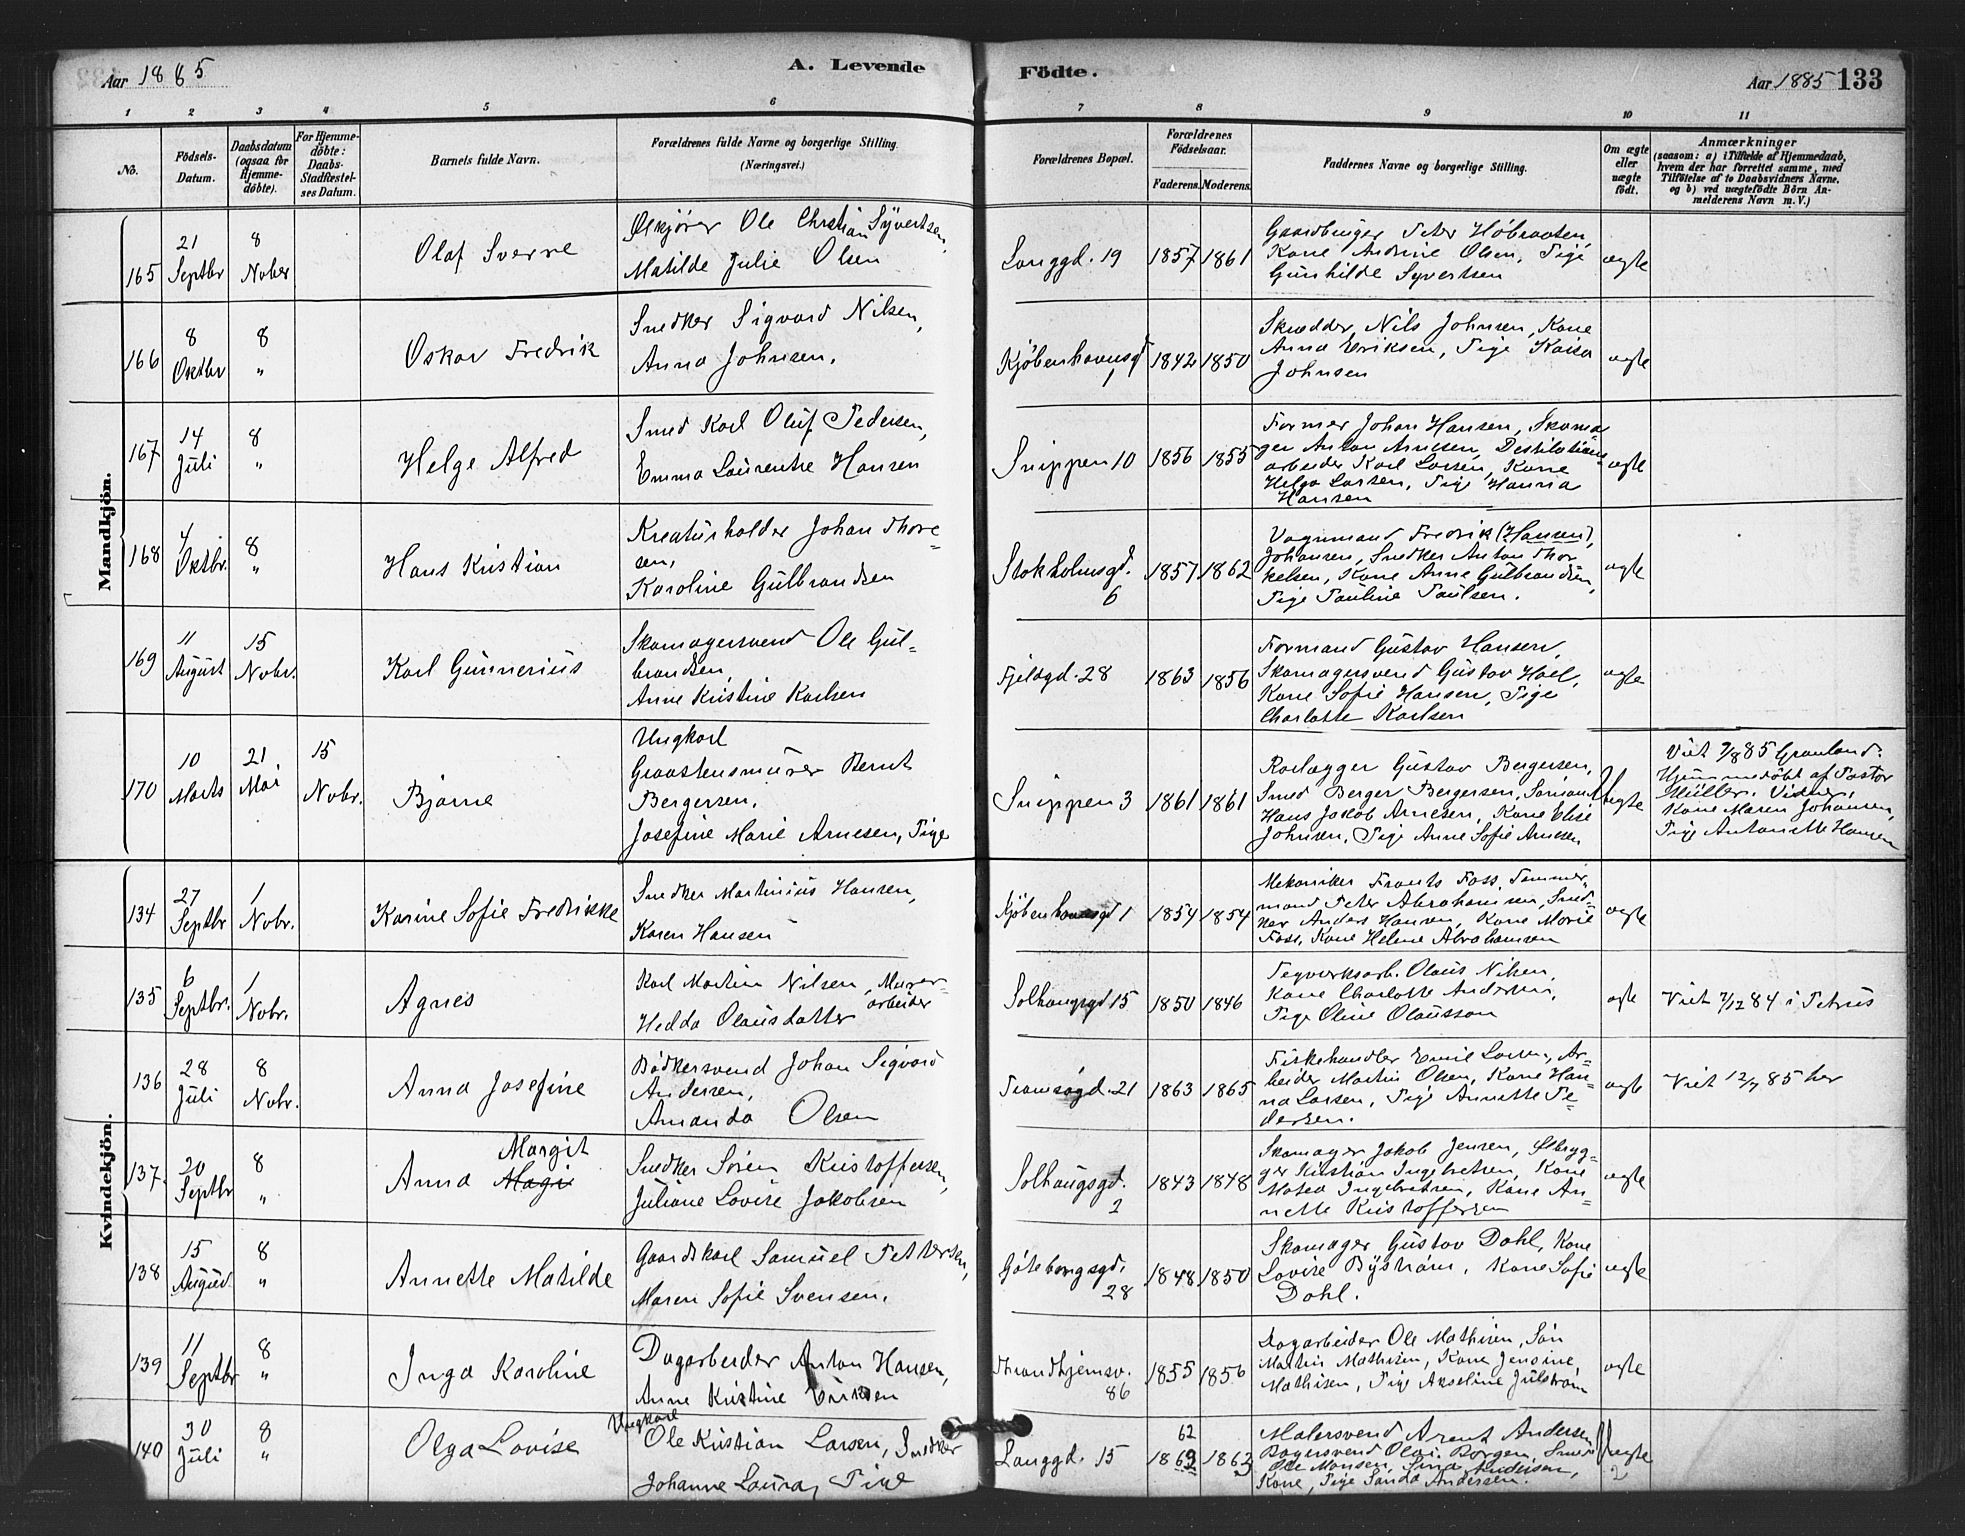 Aar 1885
A. Levende
Födte.
Aar 1885 133
1 2 3 4 5 6 7 8 9 10 11
No.
Födsels-Datum.
Daabsdatum (ogsaa for Hjemme-döbte).
For Hjemme-döbte: Daabs-Stadfæstel-ses Datum.
Barnets fulde Navn.
Forældrenes fulde Navne og borgerlige Stilling. (Næringsvei.)
Forældrenes Bopæl.
Forældrenes Födselsaar.
Faderens. Moderens.
Faddernes Navne og borgerlige Stilling.
Om ægte eller uægte födt.
Anmærkninger
(saasom: a) i Tilfælde af Hjemmedaab, hvem der har forrettet samme, med Tilföielse af to Daabsvidners Navne, og b) ved uægtefödte Börn An-melderens Navn m.V.)
Mandkjön.
165 21 Septbr 8 Nober Olaf Sverre
Ølkjører Ole Christian Syvertsen,
Matilde Julie Olsen
Langgd. 19 1857 1861
Gaardbruger Peter Høbraaten,
Kone Andrine Olsen, Pige
Gunhilde Syvertsen
ægte
166 8 Oktbr 8 " Oskar Fredrik
Snedker Sigvard Nilsen,
Anna Johnsen.
Kjøbenhavnsgd 1 1842 1850
Skrædder Nils Johnsen, Kone
Anna Eriksen, Pige Kaisa
Johnsen
ægte
167 14 Juli 8 " Helge Alfred
Smed Karl Oluf Pedersen,
Emma Laurentze Hansen
Snippen 10 1856 1855
Former Johan Hansen, Skoma
ger Anton Arnesen, Destilations-
arbeider Karl Larsen, Kone
Helga Larsen, Pige Hanna
Hansen
ægte
168 4 Oktbr. 8 " Hans Kristian
Kreaturholder Johan Thore=
sen,
Karoline Gulbrandsen
Stokholmsgd. 6 1857 1862
Vognmand Fredrik (Hansen),
Johansen, Snedker Anton Thor
kelsen, Kone Anne Gulbrandsen,
Pige Pauline Paulsen.
ægte
169 11 August 15 Nobr. Karl Gunnerius
Skomagersvend Ole Gul-
brandsen,
Anne Kristine Karlsen
Fjeldgd. 28 1863 1856
Formand Gustav Hansen,
Skomagersvend Gustav Hoel,
Kone Sofie Hansen, Pige
Charlotte Karlsen
ægte
170 10 Marts 21 Mai 15 Nobr. Bjarne
Ungkarl
Graastensmurer Bernt
Bergersen,
Josefine Marie Arnesen, Pige
Snippen 3 1861 1861
Rørlægger Gustav Bergersen,
Smed Berger Bergersen, Sømand
Hans Jakob Arnesen, Kone Elise
Johnsen, Pige Anne Sofie Arnesen
Uægte
Viet 7/8 85 Grønland.
Hjemmedøbt af Pastor
Müller. Vidner,
Kone Maren Johansen,
Pige Antonette Hansen
Kvindekjön.
134 27 Septbr 1 Nobr. Karine Sofie Fredrikke
Snedker Martinius Hansen,
Karen Hansen
Kjøbenhavnsgd 1 1854 1854
Mekaniker Frants Foss, Tømmer-
mand Peter Abrahamsen, Sned-
ker Anders Hansen, Kone Marie
Foss, Kone Helene Abrahamsen
ægte
135 6 Septbr. 1 Nobr. Agnes
Karl Martin Nilsen, Murer-
arbeider
Hedda Olausdatter
Solhaugsgd 15 1850 1846
Tegverksarb. Olaus Nilsen,
Kone Charlotte Andersen,
Pige Oline Olausson
ægte
Viet 7/12 84 i Petrus
136 28 Juli 8 Nobr. Anna Josefine
Bødkersvend Johan Sigvard
Andersen,
Amanda Olsen
Tromsøgd. 21 1863 1865
Fiskehandler Emil Larsen, Ar=
beider Martin Olsen, Kone Han=
na Larsen, Pige Annette Pe=
dersen.
ægte
Viet 12/7 85 her
137. 20 Septbr 8 " Anna Magi Margit
Snedker Søren Kristoffersen,
Juliane Lovise Jakobsen
Solhaugsgd. 2 1843 1848
Skomager Jakob Jensen, Ølbryg=
ger Kristian Ingebretsen, Kone
Matea Ingebretsen, Kone An=
nette Kristoffersen
ægte
138 15 August 8 " Annette Matilde
Gaardskarl Samuel Pettersen,
Maren Sofie Svensen.
Gøteborgsgd. 28 1848 1850
Skomager Gustav Dahl, Kone
Lovise Bystrøm, Kone Sofie
Dahl.
ægte
139 11 Septbr 8 " Inga Karoline
Dagarbeider Anton Hansen,
Anne Kristine Eriksen
Thrandhjemsv. 86 1855 1856
Dagarbeider Ole Mathisen, Søn
Martin Mathisen, Kone Jensine
Mathisen, Pige Akseline Julstrøm
ægte
140 30 Juli 8 " Olga Lovise
Ungkarl
Ole Kristian Larsen, Snedker
Johanne Laura, Pige
Langgd. 15 62 1863 1863
Malersvend Arent Andersen
Bagersvend Olai Borgen, Smed
Ole Monsen, Sina Andersen,
Kone, Pige Sanda Andersen.
Uægte
2